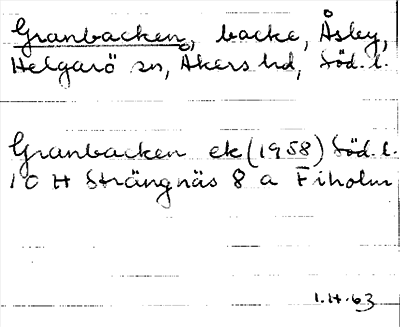 Granbacken, backe, Åsby,
Helgarö sn, Åkers hd, Söd. l.
Granbacken ek (1958) Söd. l.
10 H Strängnäs 8 a Fiholm
1.H.63